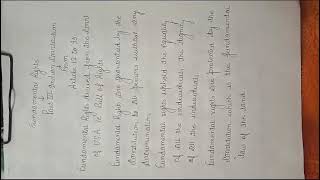 Fundamental Rights
↓
Part III - Indian Constitution
from
Article 12 to 35
Fundamental Rights derived from the Const
of U.S.A i.e. Bill of Rights
Fundamental Rights are guaranteed by the
Constitution to all persons without any
discrimination
Fundamental Rights uphold the equality
of all the individuals, the dignity
of all the individual.
Fundamental rights are protected by the
Constitution which is the fundamental
law of the land.